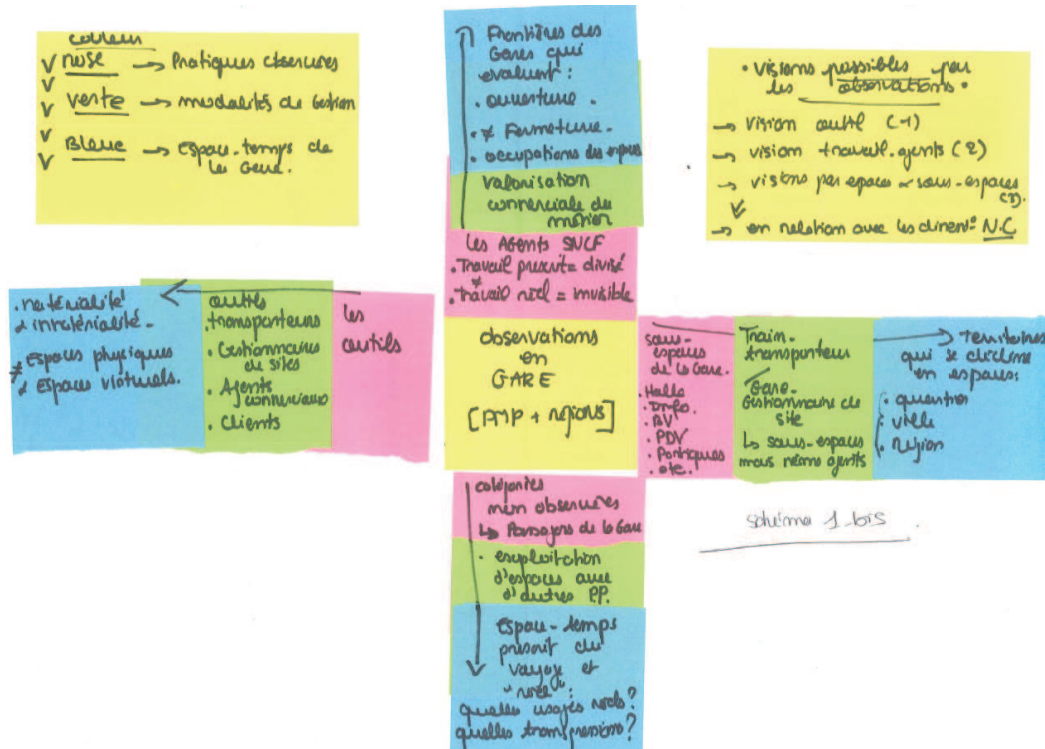 couleur
rose → Pratiques observées
verte → modalités de Gestion
Bleue → Espace-temps de
la Gare.
Frontières des
Gares qui
évoluent :
• ouverture.
• ≠ Fermeture.
• occupations des espaces
valorisation
commerciale du
métier
les Agents SNCF
• Travail prescrit = divisé
≠
• travail réel = invisible
• visions possibles par
les observations •
→ vision outil (1)
→ vision travail-agents (2)
→ visions par espaces & sous-espaces
(3).
→ en relation avec les dimens°: N.C
• matérialité
& immatérialité-
≠ Espaces physiques
& Espaces virtuels.
outils
• transporteurs
• Gestionnaires
de sites
• Agents
commerciaux
• Clients
les
outils
observations
en
GARE
[PMP + régions]
sous-
espaces
de la Gare.
• Halls
• Info.
• BV
• PDV
• Portiques
• etc.
Train-
transporteur
Gare-
Gestionnaire de
site
↳ sous-espaces
mais même agents
→ Territoires
qui se décline
en espaces:
• quartier
• ville
• région
catégories
non observées
↳ Passagers de la Gare
• exploitation
d'espaces avec
d'autres PP.
Espace-temps
prescrit du
voyage et
"réel":
quelles usages réels?
quelles transgressions?
schéma 1 bis